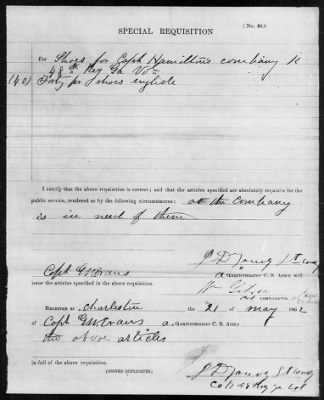 SPECIAL REQUISITION
(No. 40.)
For Shoes for Capt Hamiltons company K
48th Reg Ga Vol
(40) Forty pr Shoes english
I certify that the above requisition is correct; and that the articles specified are absolutely requisite for the
public service, rendered so by the following circumstances: at the company
is in need of them
J D Young Lt
Capt G M Evans a Quartermaster C. S. Army will
issue the articles specified in the above requisition.
COMMANDING.
Received at Charleston the 21 of May 1862
of Capt G M Evans a. Quartermaster C. S. Army
the above articles
in full of the above requisition.
(SIGNED DUPLICATES.)
J D Young
Co K 48 Reg Ga Vol